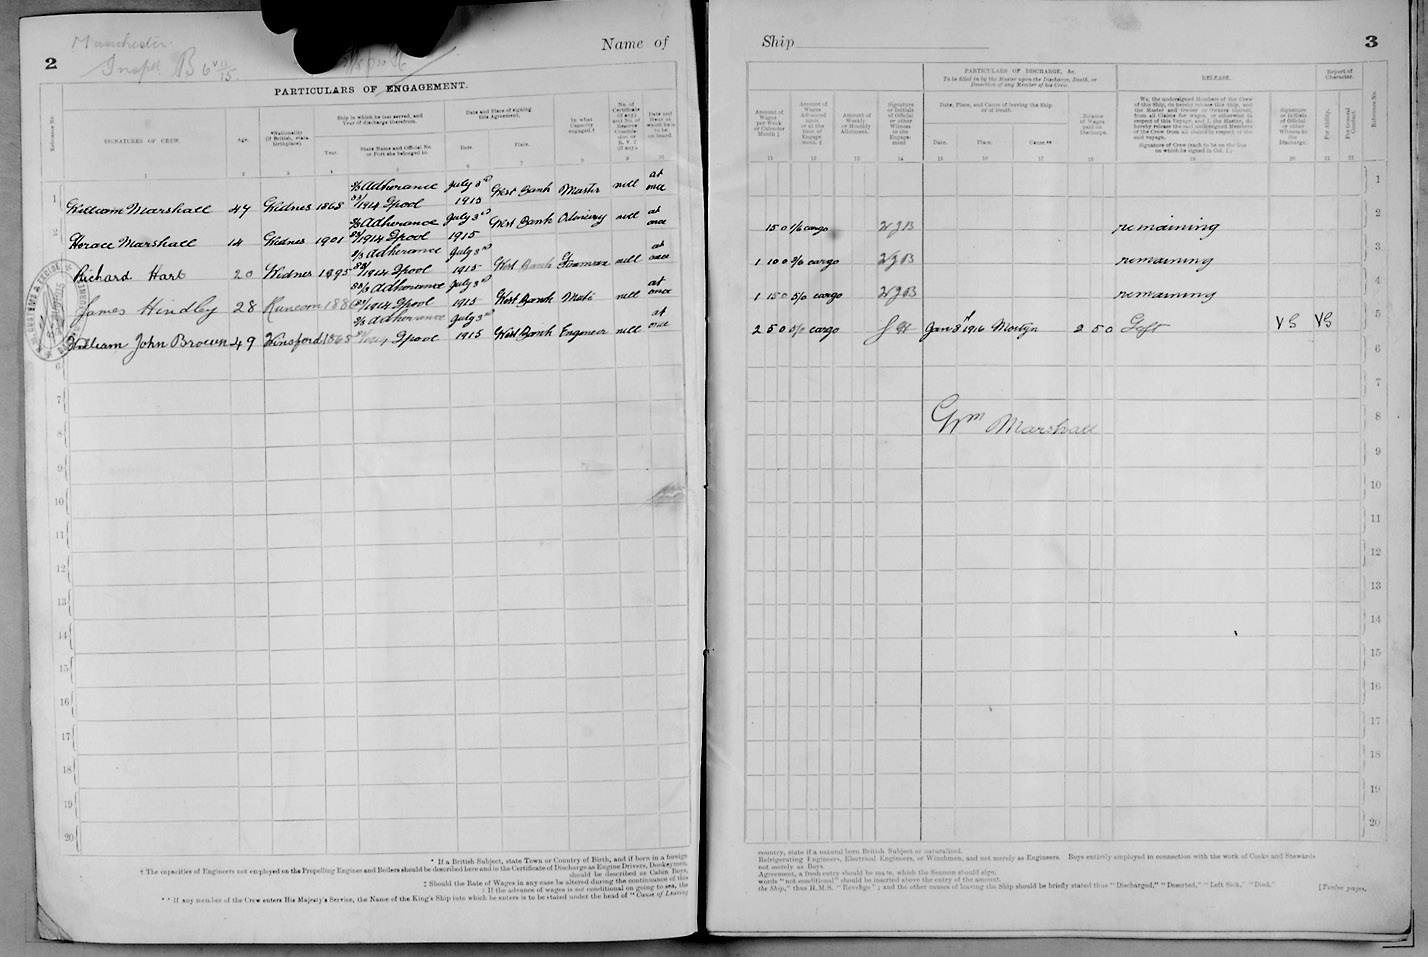 Manchester
2
B 6 VII/15
Name of
PARTICULARS OF ENGAGEMENT.
Reference No.
SIGNATURES OF CREW.
Age.
*Nationality (if British, state birthplace).
Ship in which he last served, and Year of discharge therefrom.
Year
State Name and Official No. or Port she belonged to.
Date and Place of signing this Agreement.
Date.
Place.
In what Capacity engaged.†
No. of Certificate (if any) and No. of Reserve Commission or R.V.2 (if any).
Date and Hour at which he is to be on board.
1 2 3 4 5 6 7 8 9 10
1 William Marshall 47 Widnes 1868 Adherance 1914 Lpool July 3rd 1915 West Bank Master nill at once
2 Horace Marshall 14 Widnes 1901 Adherance 1914 Lpool July 3rd 1915 West Bank Ordinary nill at once
Richard Hart 20 Widnes 1895 Adherance 1914 Lpool July 3rd 1915 West Bank nill at once
James Hindley 28 Runcorn Adherance 1914 Lpool July 3rd 1915 West Bank Mate nill at once
William John Brown 49 Winsford 1865 Adherance Lpool July 3rd 1915 West Bank Engineer nill at once
6
7
8
9
10
11
12
13
14
15
16
17
18
19
20
* If a British Subject, state Town or Country of Birth, and if born in a foreign
† The capacities of Engineers not employed on the Propelling Engines and Boilers should be described here and in the Certificate of Discharge as Engine Drivers, Donkeymen,
should be described as Cabin Boys,
‡ Should the Rate of Wages in any case be altered during the continuance of this
‡ If the advance of wages is not conditional on going to sea, the
** If any member of the Crew enters His Majesty's Service, the Name of the King's Ship into which he enters is to be stated under the head of "Cause of Leaving
Ship
3
PARTICULARS OF DISCHARGE, &c.
To be filled in by the Master upon the Discharge, Death, or Desertion of any Member of his Crew.
RELEASE.
Report of Character.
Amount of Wages per Week or Calendar Month ‡
Amount of Wages Advanced upon or at the time of Engagement. ‡
Amount of Weekly or Monthly Allotment.
Signature or Initials of Official or other Witness to the Engagement
Date, Place, and Cause of leaving the Ship or of Death.
Date.
Place.
Cause.**
Balance of Wages paid on Discharge.
We, the undersigned Members of the Crew of this Ship, do hereby release this ship, and the Master and Owner or Owners thereof, from all Claims for wages, or otherwise in respect of this Voyage, and I, the Master, do hereby release the said undersigned Members of the Crew from all claims in respect of the said voyage.
Signature of Crew (each to be on the line on which he signed in Col. 1.)
Signature or Initials of Official or other Witness to the Discharge.
For Ability.
For General Conduct.
Reference No.
11 12 13 14 15 16 17 18 19 20 21 22
1
15 0 1/6 cargo WJB remaining 2
1 10 0 cargo WJB remaining 3
1 15 0 5/0 cargo WJB remaining 4
2 5 0 5/0 cargo Jan 8th 1916 Mostyn 2 5 0 Left VG VG 5
6
7
Wm Marshall 8
9
10
11
12
13
14
15
16
17
18
19
20
country, state if a natural born British Subject or naturalized.
Refrigerating Engineers, Electrical Engineers, or Winchmen, and not merely as Engineers. Boys entirely employed in connection with the work of Cooks and Stewards
not merely as Boys.
Agreement, a fresh entry should be made, which the Seamen should sign.
words "not conditional" should be inserted above the entry of the amount.
the Ship," thus H.M.S. "Revenge"; and the other causes of leaving the Ship should be briefly stated thus "Discharged," "Deserted," "Left Sick," "Died."
[Twelve pages.